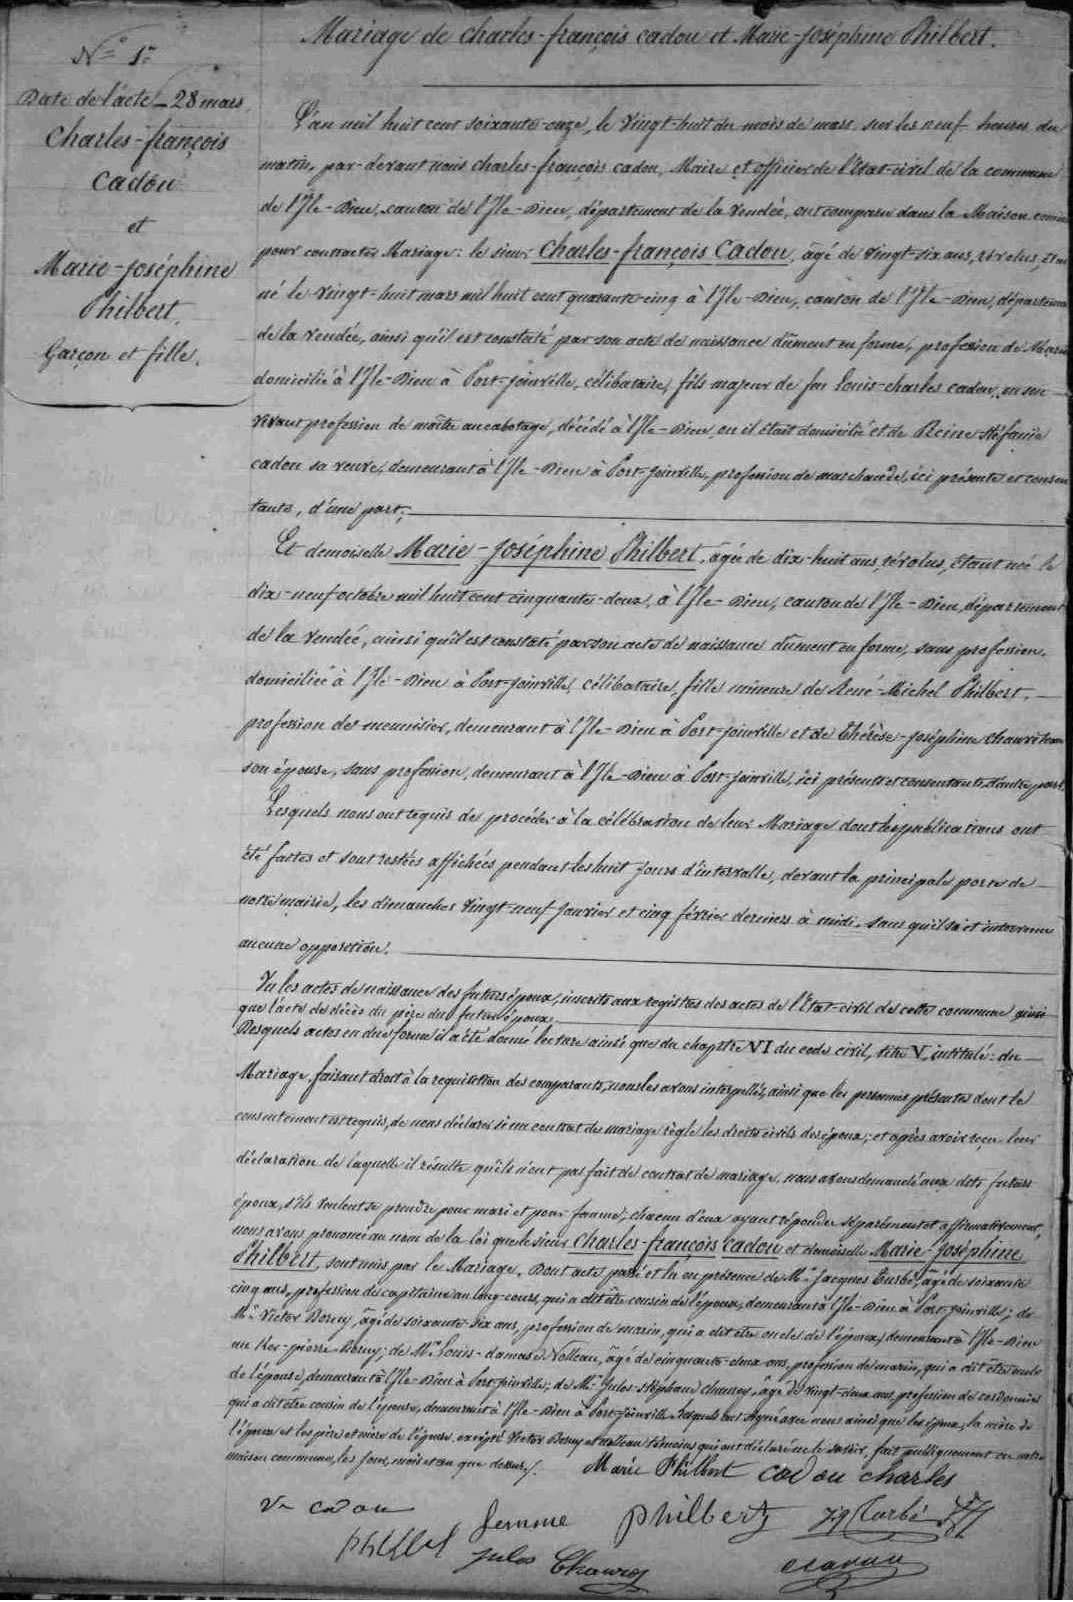 Mariage de Charles-françois cadou et Marie-Joséphine Philbert.
N° 5
Date de l'acte - 28 mars
Charles-françois
Cadou
et
Marie-Joséphine
Philbert.
Garçon et fille.
L'an mil huit cent soixante-onze, le vingt-huit du mois de mars, sur les neuf heures du
matin, par-devant nous Charles-françois cadou, Maire et officier de l'état-civil de la commune
de l'Ile-Dieu, canton de l'Ile-Dieu, département de la Vendée, ont comparu dans la Maison
pour contracter Mariage: le sieur Charles-françois Cadou, âgé de vingt-six ans, révolus,
né le vingt-huit mars mil huit cent quarante-cinq à l'Ile-Dieu, canton de l'Ile-Dieu,
de la Vendée, ainsi qu'il est constaté par son acte de naissance dûment en forme, profession de
domicilié à l'Ile-Dieu à Port-Joinville, célibataire, fils majeur de feu Louis-Charles cadou, en son
vivant profession de maître au cabotage, décédé à l'Ile-Dieu, où il était domicilié et de Reine-Stéfanie
cadou sa veuve, demeurant à l'Ile-Dieu à Port-Joinville, profession de marchande, ici présente et consen
tante, d'une part;
Et demoiselle Marie-Joséphine Philbert, âgée de dix-huit ans, révolus, étant née le
dix-neuf octobre mil huit cent cinquante-deux, à l'Ile-Dieu, canton de l'Ile-Dieu, département
de la Vendée, ainsi qu'il est constaté par son acte de naissance dûment en forme, sans profession,
domiciliée à l'Ile-Dieu à Port-Joinville, célibataire, fille mineure de René-Michel Philbert,
profession de meunier, demeurant à l'Ile-Dieu à Port-Joinville et de Thérèse-Joséphine
son épouse, sans profession, demeurant à l'Ile-Dieu à Port-Joinville, ici présents et consentants, d'autre part.
Lesquels nous ont requis de procéder à la célébration de leur Mariage dont les publications ont
été faites et sont restées affichées pendant les huit jours d'intervalle, devant la principale porte de
notre mairie, les dimanches vingt-neuf Janvier et cinq février derniers à midi, sans qu'il soit intervenu
aucune opposition.
Vu les actes de naissance des futurs époux, inscrits aux registres des actes de l'Etat-civil de cette commune ainsi
que l'acte de décès du père du futur époux.
Desquels actes en due forme il a été donné lecture ainsi que du chapitre VI du code civil, titre V, intitulé: du
Mariage, faisant droit à la requisition des comparants, nous les avons interpellés, ainsi que les personnes présentes dont le
consentement est requis, de nous déclarer si un contrat de mariage règle les droits civils des époux; et après avoir reçu leur
déclaration de laquelle il résulte qu'ils n'ont pas fait de contrat de mariage, nous avons demandé aux dits futurs
époux, s'ils veulent se prendre pour mari et pour femme, chacun d'eux ayant répondu séparément et affirmativement,
nous avons prononcé au nom de la loi que le sieur Charles-françois cadou et demoiselle Marie-Joséphine
Philbert, sont unis par le Mariage. Dont acte passé et lu en présence de Mr Jacques Turbé, âgé de soixante
cinq ans, profession de capitaine au long-cours, qui a dit être cousin de l'époux, demeurant à l'Ile-Dieu à Port-Joinville; de
Mr Victor Berny, âgé de soixante-six ans, profession de marin, qui a dit être oncle de l'époux, demeurant à l'Ile-Dieu
Berny; de Mr Louis-damase Nolleau, âgé de cinquante-deux ans, profession de marin, qui a dit être oncle
de l'épouse, demeurant à l'Ile-Dieu à Port-Joinville; de Mr Jules-Stéphane Chauroy, âgé de vingt-deux ans, profession de cordonnier
qui a dit être cousin de l'épouse, demeurant à l'Ile-Dieu à Port-Joinville. Lesquels ont signé avec nous ainsi que les époux, la mère de
l'époux et les père et mère de l'épouse, excepté Victor Berny et Nolleau témoins qui ont déclaré ne le savoir, fait publiquement en notre
maison commune, les jour, mois et an que dessus.
Marie Philbert cadou charles
Ve cadou femme philbert Jq Turbé
philbert Jules Chauroy cadou